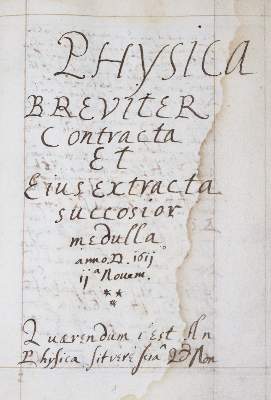 PHYSICA
BREVITER
Contracta
Et
Eius extracta
succosior
medulla
anno D. 1611
11ª Novem.
Quærendum 1 est An
Physica sit veri